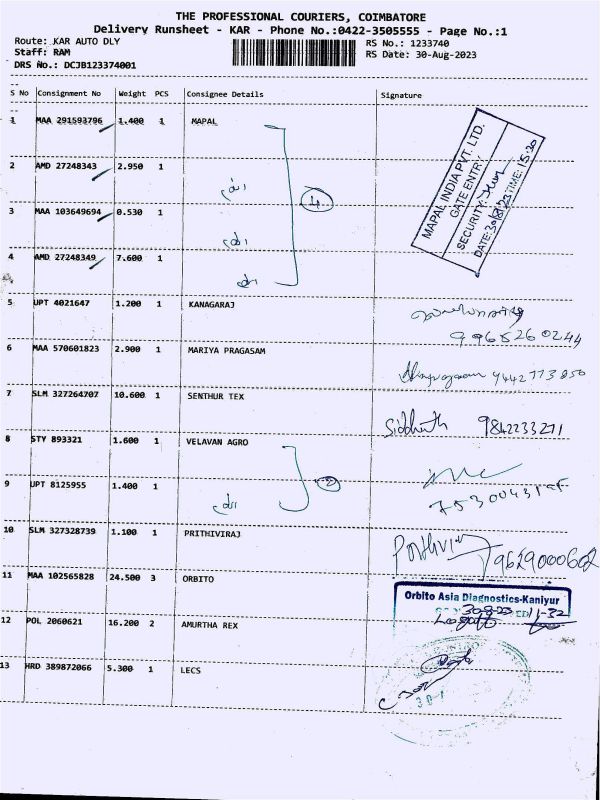 THE PROFESSIONAL COURIERS, COIMBATORE
Delivery Runsheet - KAR - Phone No.:0422-3505555 - Page No.:1
Route: KAR AUTO DLY RS No.: 1233740
Staff: RAM RS Date: 30-Aug-2023
DRS No.: DCJB123374001
S No Consignment No Weight PCS Consignee Details Signature
1 MAA 291593796 1.400 1 MAPAL
MAPAL INDIA PVT. LTD.
GATE ENTRY
SECURITY:
DATE: 30/8/23 TIME: 15:20
2 AMD 27248343 2.950 1
3 MAA 103649694 0.530 1
4
4 AMD 27248349 7.600 1
5 UPT 4021647 1.200 1 KANAGARAJ
9965260244
6 MAA 570601823 2.900 1 MARIYA PRAGASAM
9442773850
7 SLM 327264707 10.600 1 SENTHUR TEX
Siddharth 9842233271
8 STY 893321 1.600 1 VELAVAN AGRO
2
9 UPT 8125955 1.400 1
10 SLM 327328739 1.100 1 PRITHIVIRAJ
9629000602
11 MAA 102565828 24.500 3 ORBITO
Orbito Asia Diagnostics-Kaniyur
30-8-23 11-32
12 POL 2060621 16.200 2 AMURTHA REX
13 HRD 389872066 5.300 1 LECS